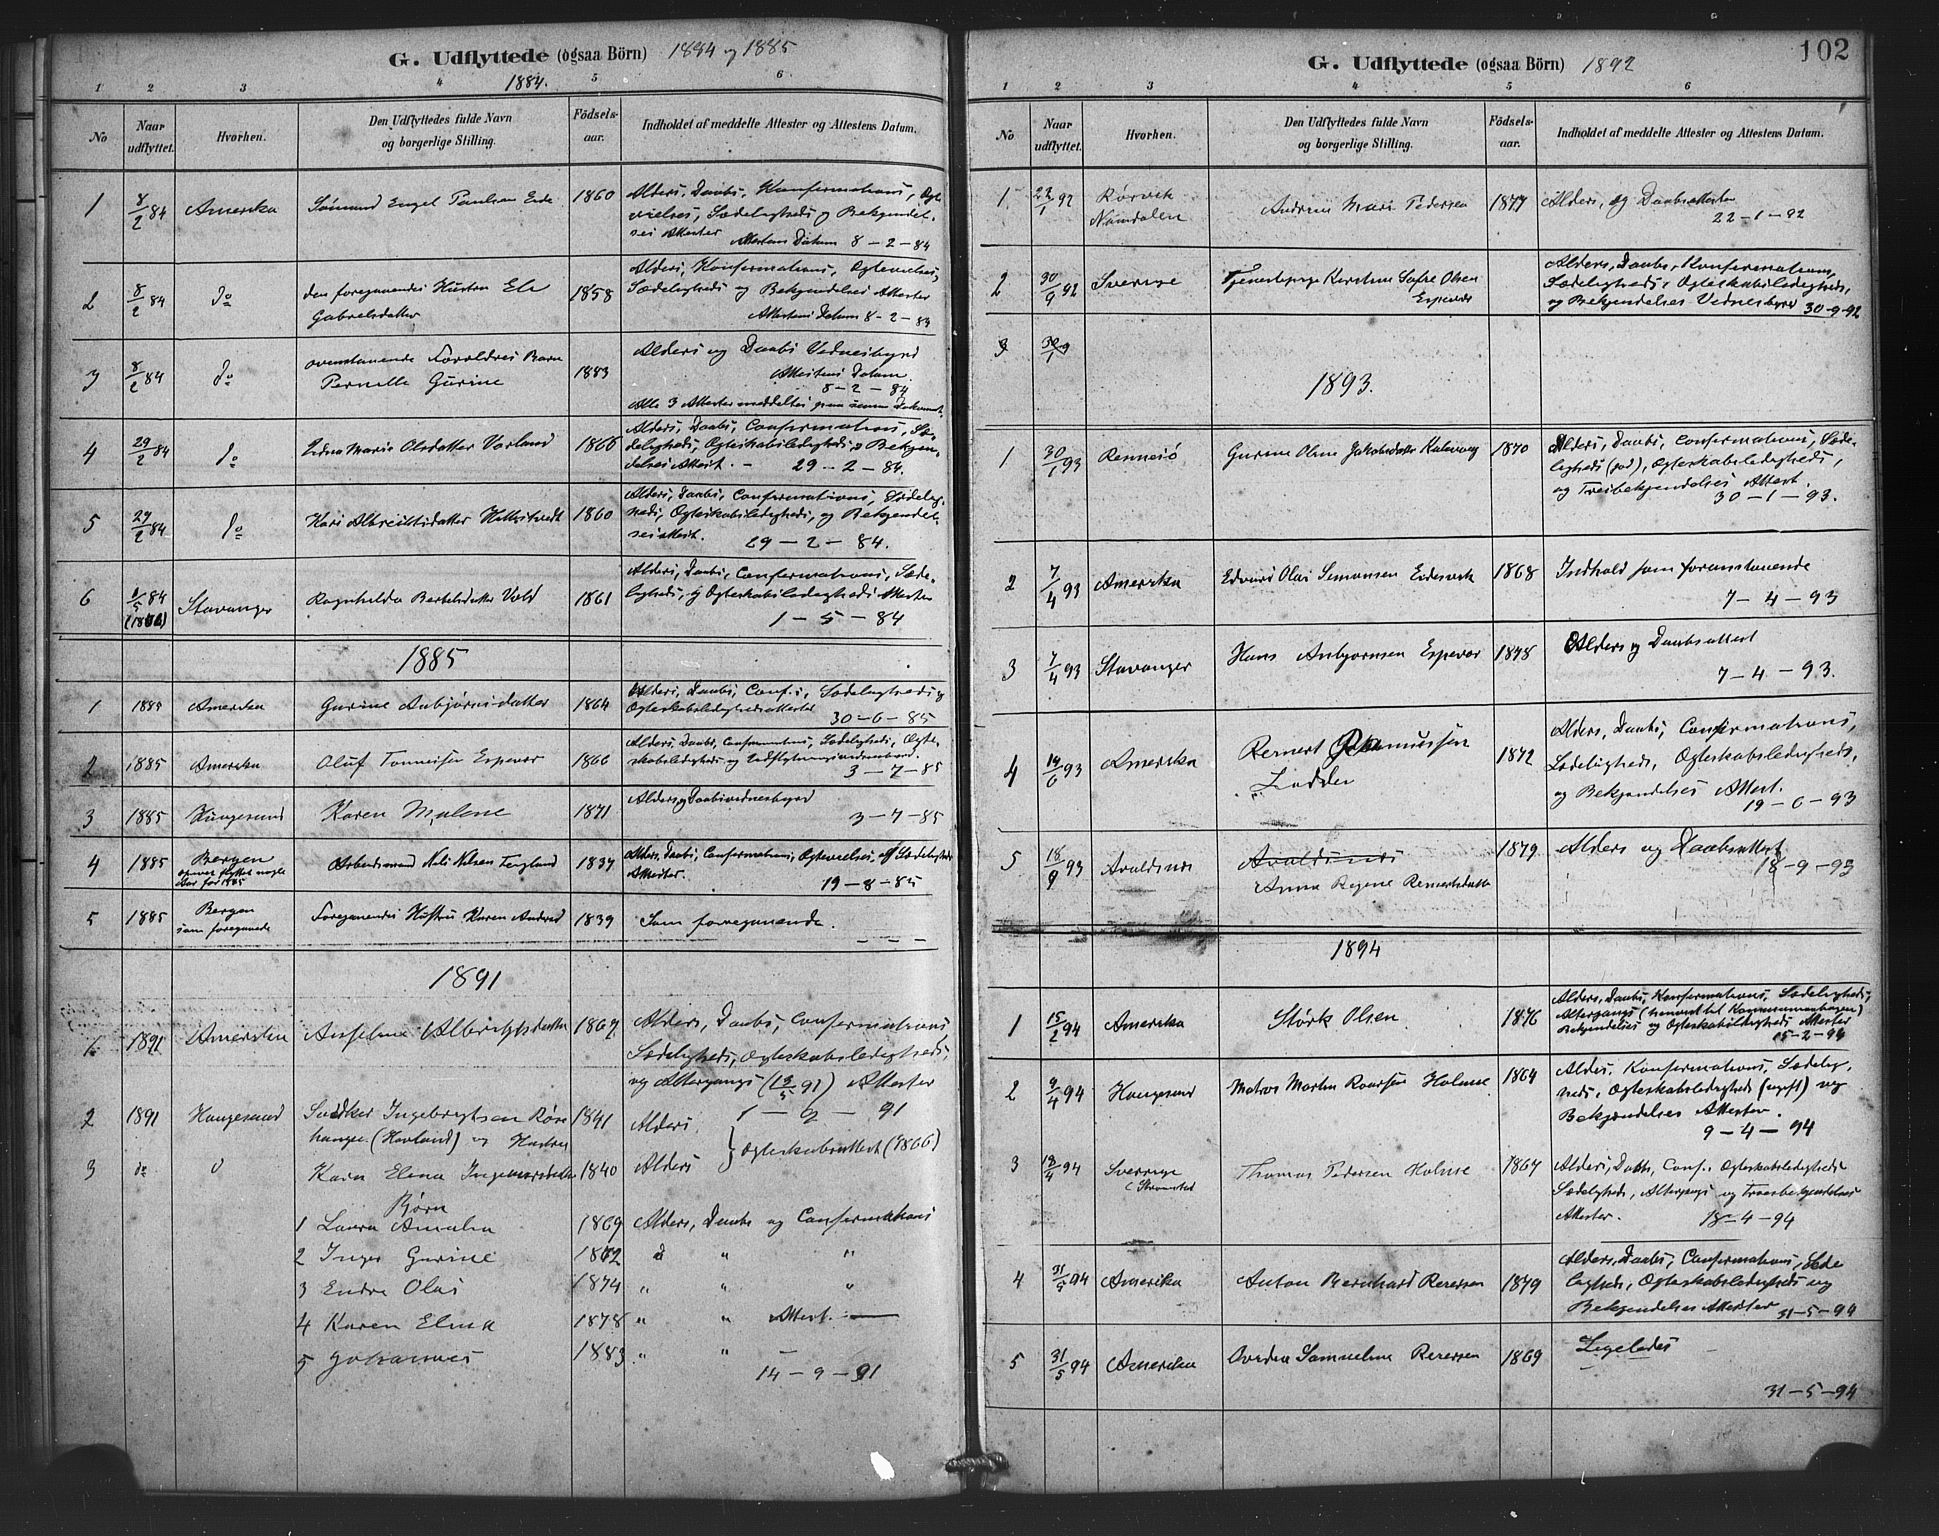 G. Udflyttede (ogsaa Börn) 1884 og 1885
1884.
1 2 3 4 5 6
No
Naar udflyttet.
Hvorhen.
Den Udflyttedes fulde Navn og borgerlige Stilling.
Födsels-aar.
Indholdet af meddelte Attester og Attestens Datum.
1 8/2 84 Amerika Sømund Engel Paulsen 1860 Alders, Daabs, Konfirmations,
vielses, Sædeligheds og Bekjendel-
ses Attester Attestens Datum 8-2-84
2 8/2 84 do den foregaaendes Hustru 1858 Alders, Konfirmations,
Gabrielsdatter Sædeligheds og Bekjendelses Attester
Attestens Datum 8-2-84
3 8/2 84 do ovenstaaende Forældres Barn 1883 Alders og Daabs Vidnesbyrd
Pernille Gurine Attestens Datum
8-2-84
Alle 3 Attester meddeltes paa samme
4 29/2 84 do Marie Olsdatter 1866 Alders, Daabs, Confirmations, Sæ-
deligheds, Ogteskabsledigheds, & Bekjen-
delses Attest. - 29-2-84.
5 29/2 84 do Kari 1860 Alders, Daabs, Confirmations, Sædelig-
heds, Ogteskabsledigheds, og Bekjendel-
ses Attest. 29-2-84.
6 1/5 84 Stavanger Ragnhilda Bertelsdatter 1861 Alders, Daabs, Confirmations, Sæde-
ligheds, og Ogteskabsledigheds Attester
1-5-84
1885
1 1885 Amerika Gurine Anbjørnsdatter 1864 Alders, Daabs, Conf.s, Sædeligheds og
Ogteskabsledigheds Attester
30-6-85
2 1885 Amerika Oluf Tønnesen Espevær 1866 Alders, Daabs, Confirmations, Sædeligheds, Ogte-
skabsledigheds og
3-7-85
3 1885 Haugesund Karen Malene 1871 Alders og Daabsvidnesbyrd
3-7-85
4 1885 Bergen Arbeidsmand Nils Nilsen 1837 Alders, Daabs, Confirmations, Ogtevielses, og Sædeligheds
Attester. 19-8-85
5 1885 Bergen Foregaaendes Hustru Karen 1839 Som foregaaende.
som foregaaende
1891
1 1891 Anselma 1867 Alders, Daabs, Confirmations
Sædeligheds, Ogteskabsledigheds,
og Altergangs Attester
91
2 1891 Haugesund Ingebrigtsen 1841 Alders
(Hovland) og Hustru Ogteskabsattest (1866)
3 do Karen Elena 1840 Alders
Børn
1 Laura Amalia 1869 Alders, Daabs og Confirmations
2 Inger Gurine 1872 " "
3 Endre Olai 1874 " " "
4 Karen Elina 1878 " " Attest.
5 Johannes 1883 " "
14-9-91
102
G. Udflyttede (ogsaa Börn) 1892
1 2 3 4 5 6
No
Naar udflyttet.
Hvorhen.
Den Udflyttedes fulde Navn og borgerlige Stilling.
Födsels-aar.
Indholdet af meddelte Attester og Attestens Datum.
1 22/1 92 Rørvik Andrea Mari Pedersen 1877 Alders, og Daabsattester
Namdalen 22-1-92
2 30/9 92 Sverige Tjenestepige Olsen Alders, Daabs, Konfirmations,
Espevær Sædeligheds, Ogteskabsledigheds,
og Bekjendelses Vidnesbyrd 30-9-92
3
1893.
1 30/1 93 Rennesø Gurine Oline Jakobsdatter 1870 Alders, Daabs, Confirmations, Sæde-
ligheds (god), Ogteskabsledigheds,
og Attest.
30-1-93.
2 7/4 93 Amerika Edvard Olai Simonsen 1868 Indhold som foranstaaende
7-4-93
3 7/4 93 Stavanger Hans Anbjørnsen Espevær 1878 Alders og Daabsattest
7-4-93.
4 19/6 93 Amerika Reinert Rasmussen 1872 Alders, Daabs, Confirmations,
Lodden Sædeligheds, Ogteskabsledigheds,
og Bekjendelses Attest.
19-6-93
5 18/9 93 Avaldsnes Avaldsnes 1879 Alders og Daabsattest
Anna Regine Reinertsdatter 18-9-93
1894
1 15/2 94 Amerika Størk Olsen 1876 Alders, Daabs, Konfirmations, Sædeligheds,
Altergangs
Bekjendelses og Ogteskabsledigheds Attester
15-2-94
2 9/4 94 Haugesund Matros Martin Holme 1864 Alders, Konfirmations, Sædelig-
heds, Ogteskabsledigheds (ugift) og
Bekjendelses Attester.
9-4-94
3 18/4 94 Sverrige Thomas Pedersen Holme 1867 Alders, Daabs, Conf.s Ogteskabsledigheds
(Strømstad Sædeligheds, Altergangs og
Attester. 18-4-94
4 31/5 94 Amerika Anton Bernhard Reiersen 1879 Alders, Daabs, Confirmations, Sæde
ligheds, Ogteskabsledigheds og
Bekjendelses Attester
31-5-94
5 31/5 94 Amerika Samueline Reiersen 1869 Ligeledes
31-5-94